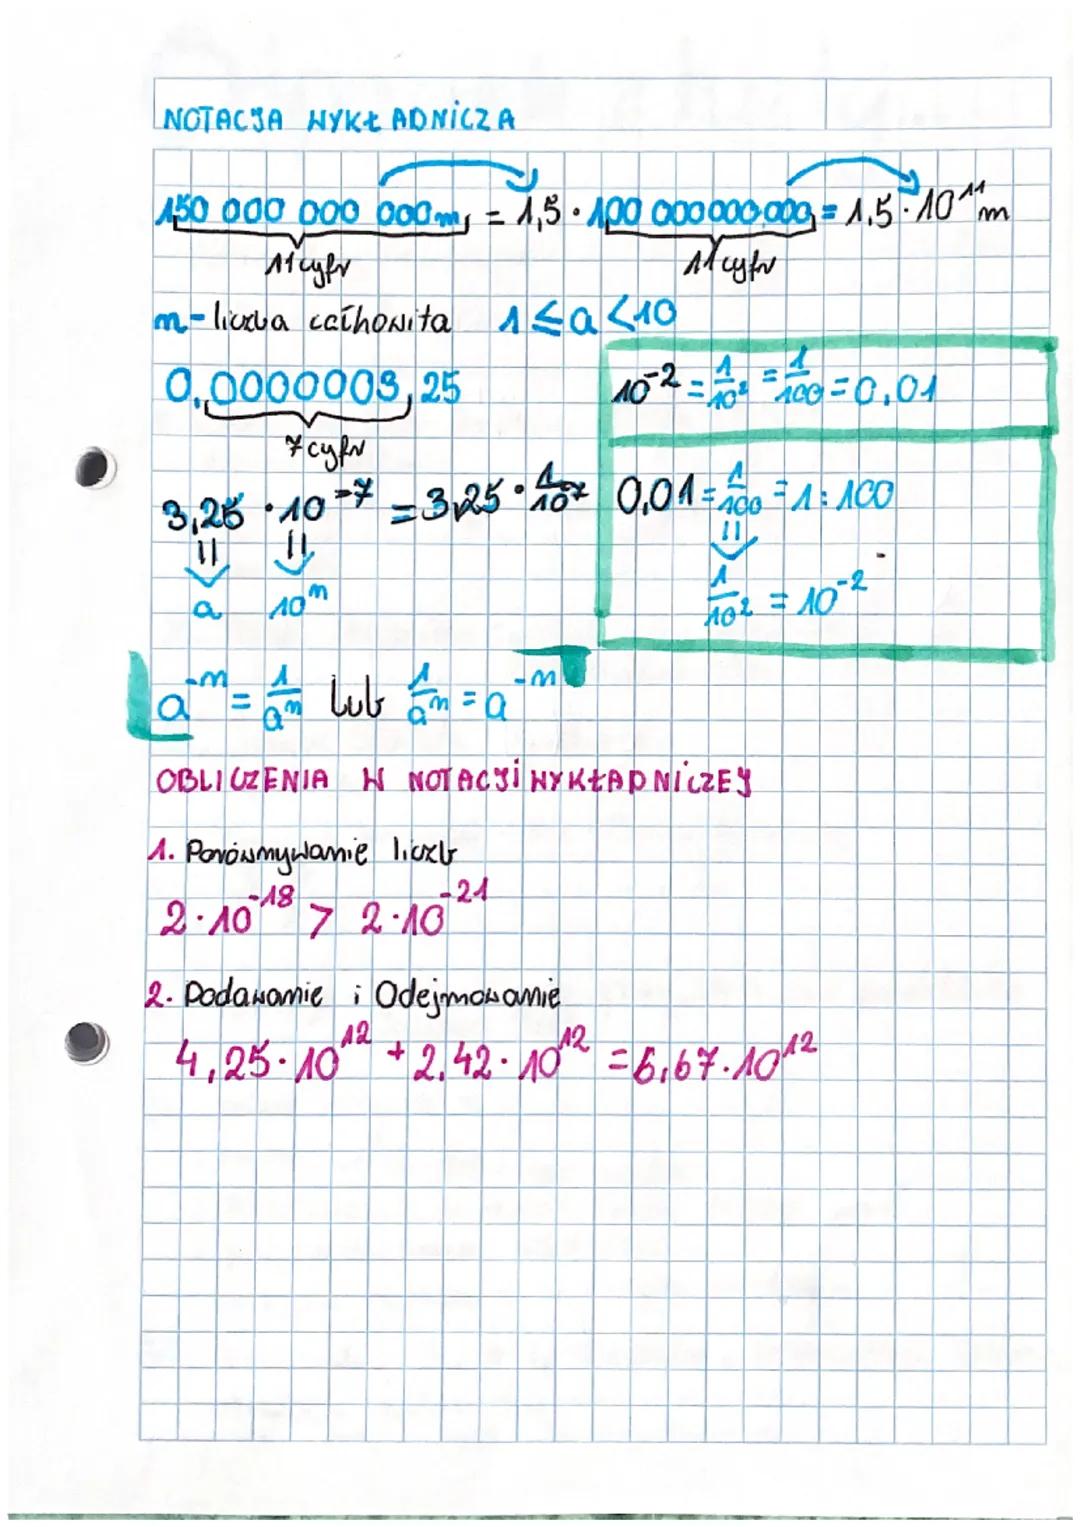 NOTACJA WYKŁADNICZA
150 000 000 000 m = 1,5 · 100 000 000 000 = 1,5 · 10¹¹ m
11 cyfr 11 cyfr
n - liczba całkowita 1 ≤ a < 10
0,0000003,25
7 cyfr
3,25 · 10⁻⁷ = 3,25 · 1/10⁷
a 10ⁿ
10⁻² = 1/10² = 1/100 = 0,01
0,01 = 1/100 = 1 : 100
1/10² = 10⁻²
a⁻ⁿ = 1/aⁿ lub 1/aⁿ = a⁻ⁿ
OBLICZENIA W NOTACJI WYKŁADNICZEJ
1. Porównywanie liczb
2 · 10⁻¹⁸ > 2 · 10⁻²¹
2. Dodawanie i Odejmowanie
4,25 · 10¹² + 2,42 · 10¹² = 6,67 · 10¹²